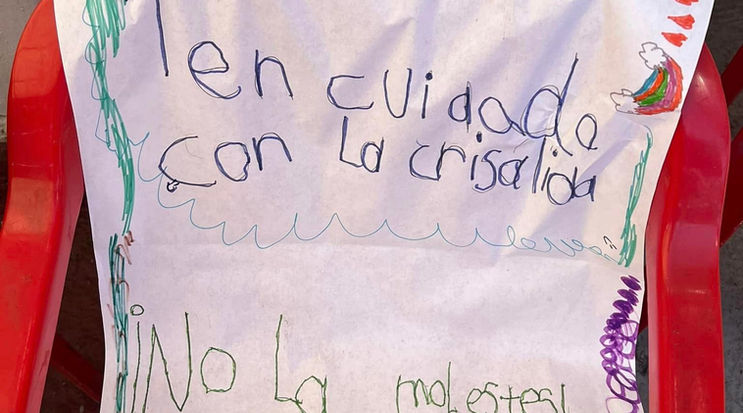 Ten cuidado
con la crisalida
¡No la molestes!